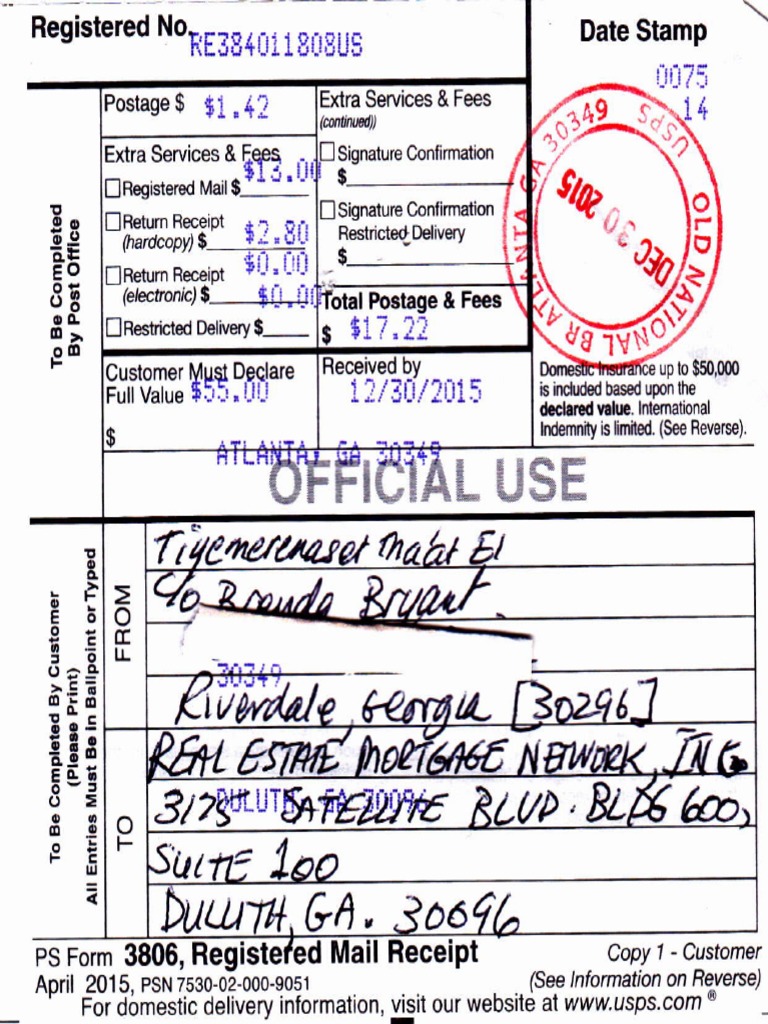 Registered No.
RE384011808US
Date Stamp
0075
14
Postage $ $1.42
Extra Services & Fees
$13.00
Registered Mail $
Return Receipt
(hardcopy) $ $2.80
$0.00
Return Receipt
(electronic) $ $0.00
Restricted Delivery $
Extra Services & Fees
(continued))
Signature Confirmation
$
Signature Confirmation
Restricted Delivery
$
Total Postage & Fees
$ $17.22
OLD NATIONAL BR ATLANTA GA 30349 USPS
DEC 30 2015
To Be Completed
By Post Office
Customer Must Declare
Full Value $55.00
$
Received by
12/30/2015
Domestic Insurance up to $50,000
is included based upon the
declared value. International
Indemnity is limited. (See Reverse).
ATLANTA, GA 30349
OFFICIAL USE
To Be Completed By Customer
(Please Print)
All Entries Must Be in Ballpoint or Typed
FROM
Tiyemerenaset Ma'at El
c/o Brenda Bryant.
30349
Riverdale, Georgia [30296]
TO
REAL ESTATE MORTGAGE NETWORK, INC.
DULUTH, GA 30096
3175 SATELLITE BLVD. BLDG 600,
SUITE 100
DULUTH, GA. 30096
PS Form 3806, Registered Mail Receipt
Copy 1 - Customer
April 2015, PSN 7530-02-000-9051
(See Information on Reverse)
For domestic delivery information, visit our website at www.usps.com ®